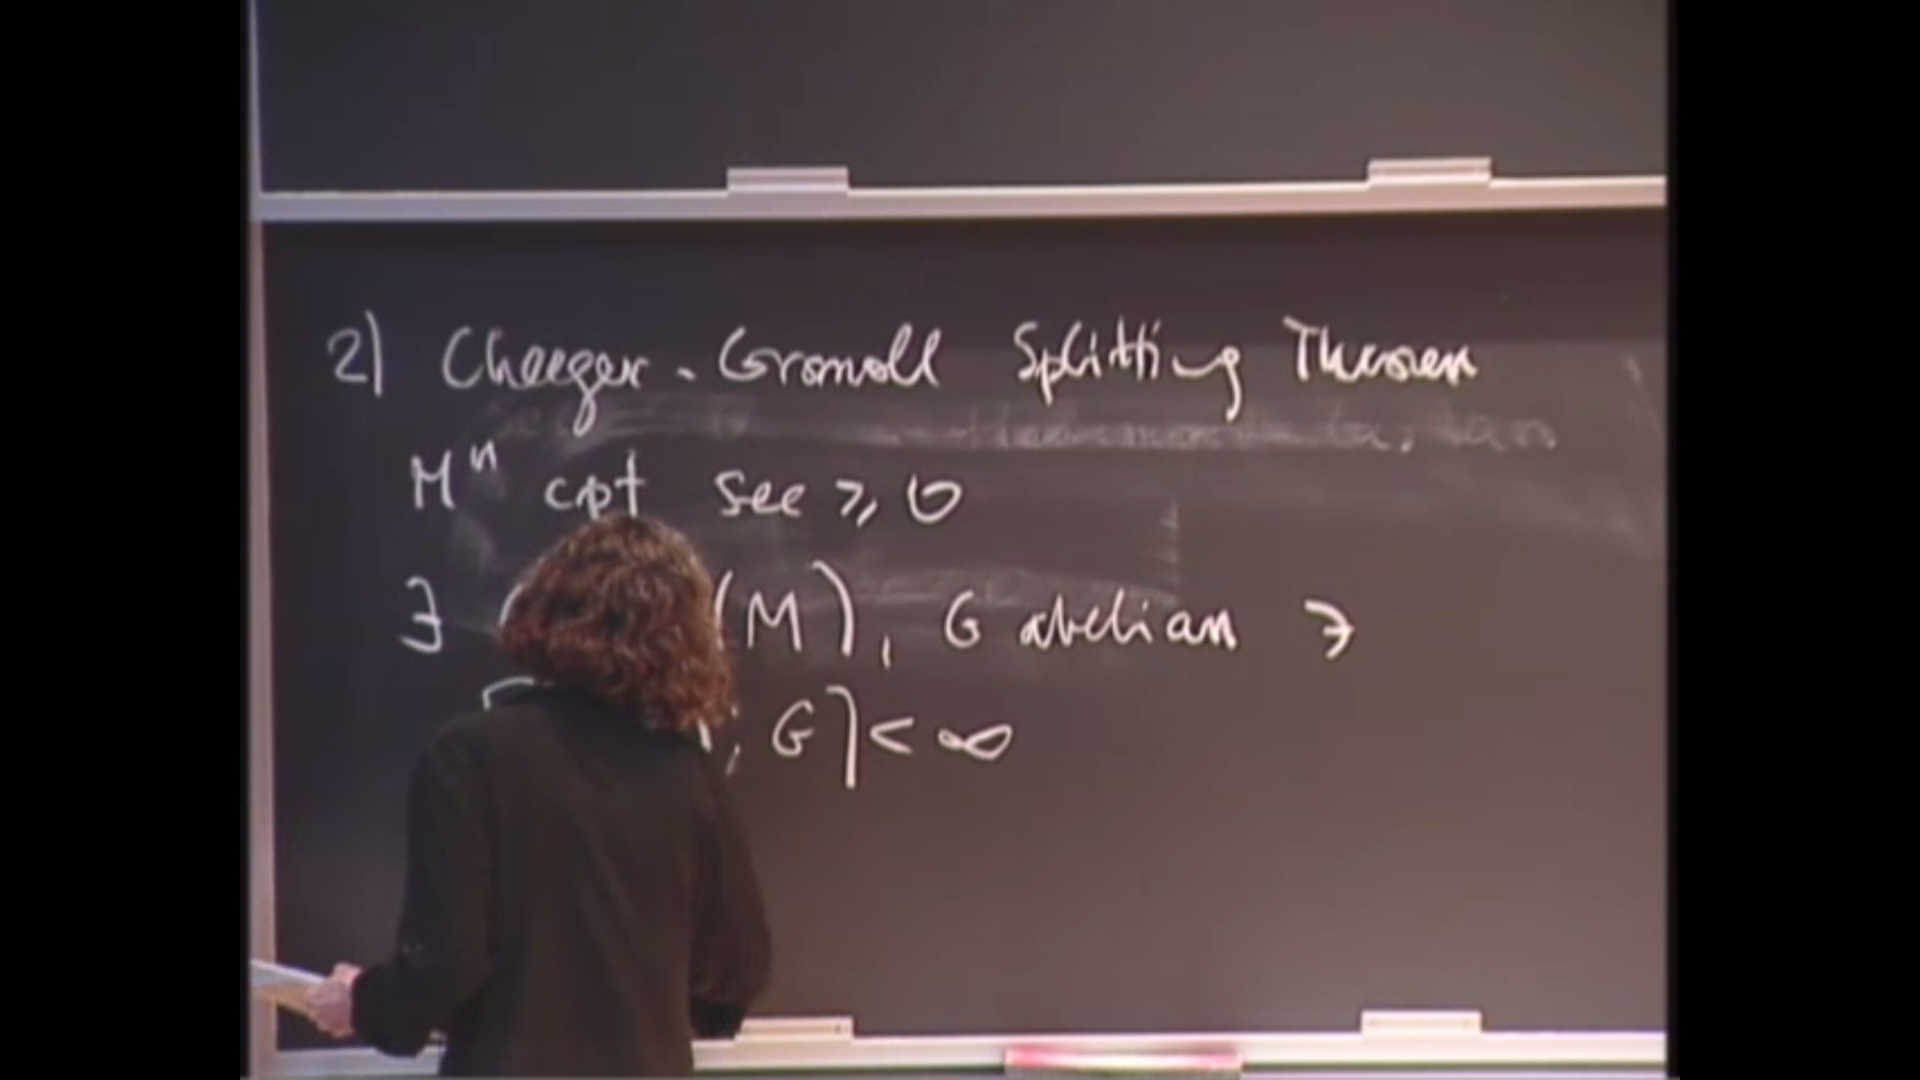 2) Cheeger - Gromoll Splitting Theorem
Mⁿ cpt sec ≥ 0
∃ (M), G abelian ∋
[ , G] < ∞